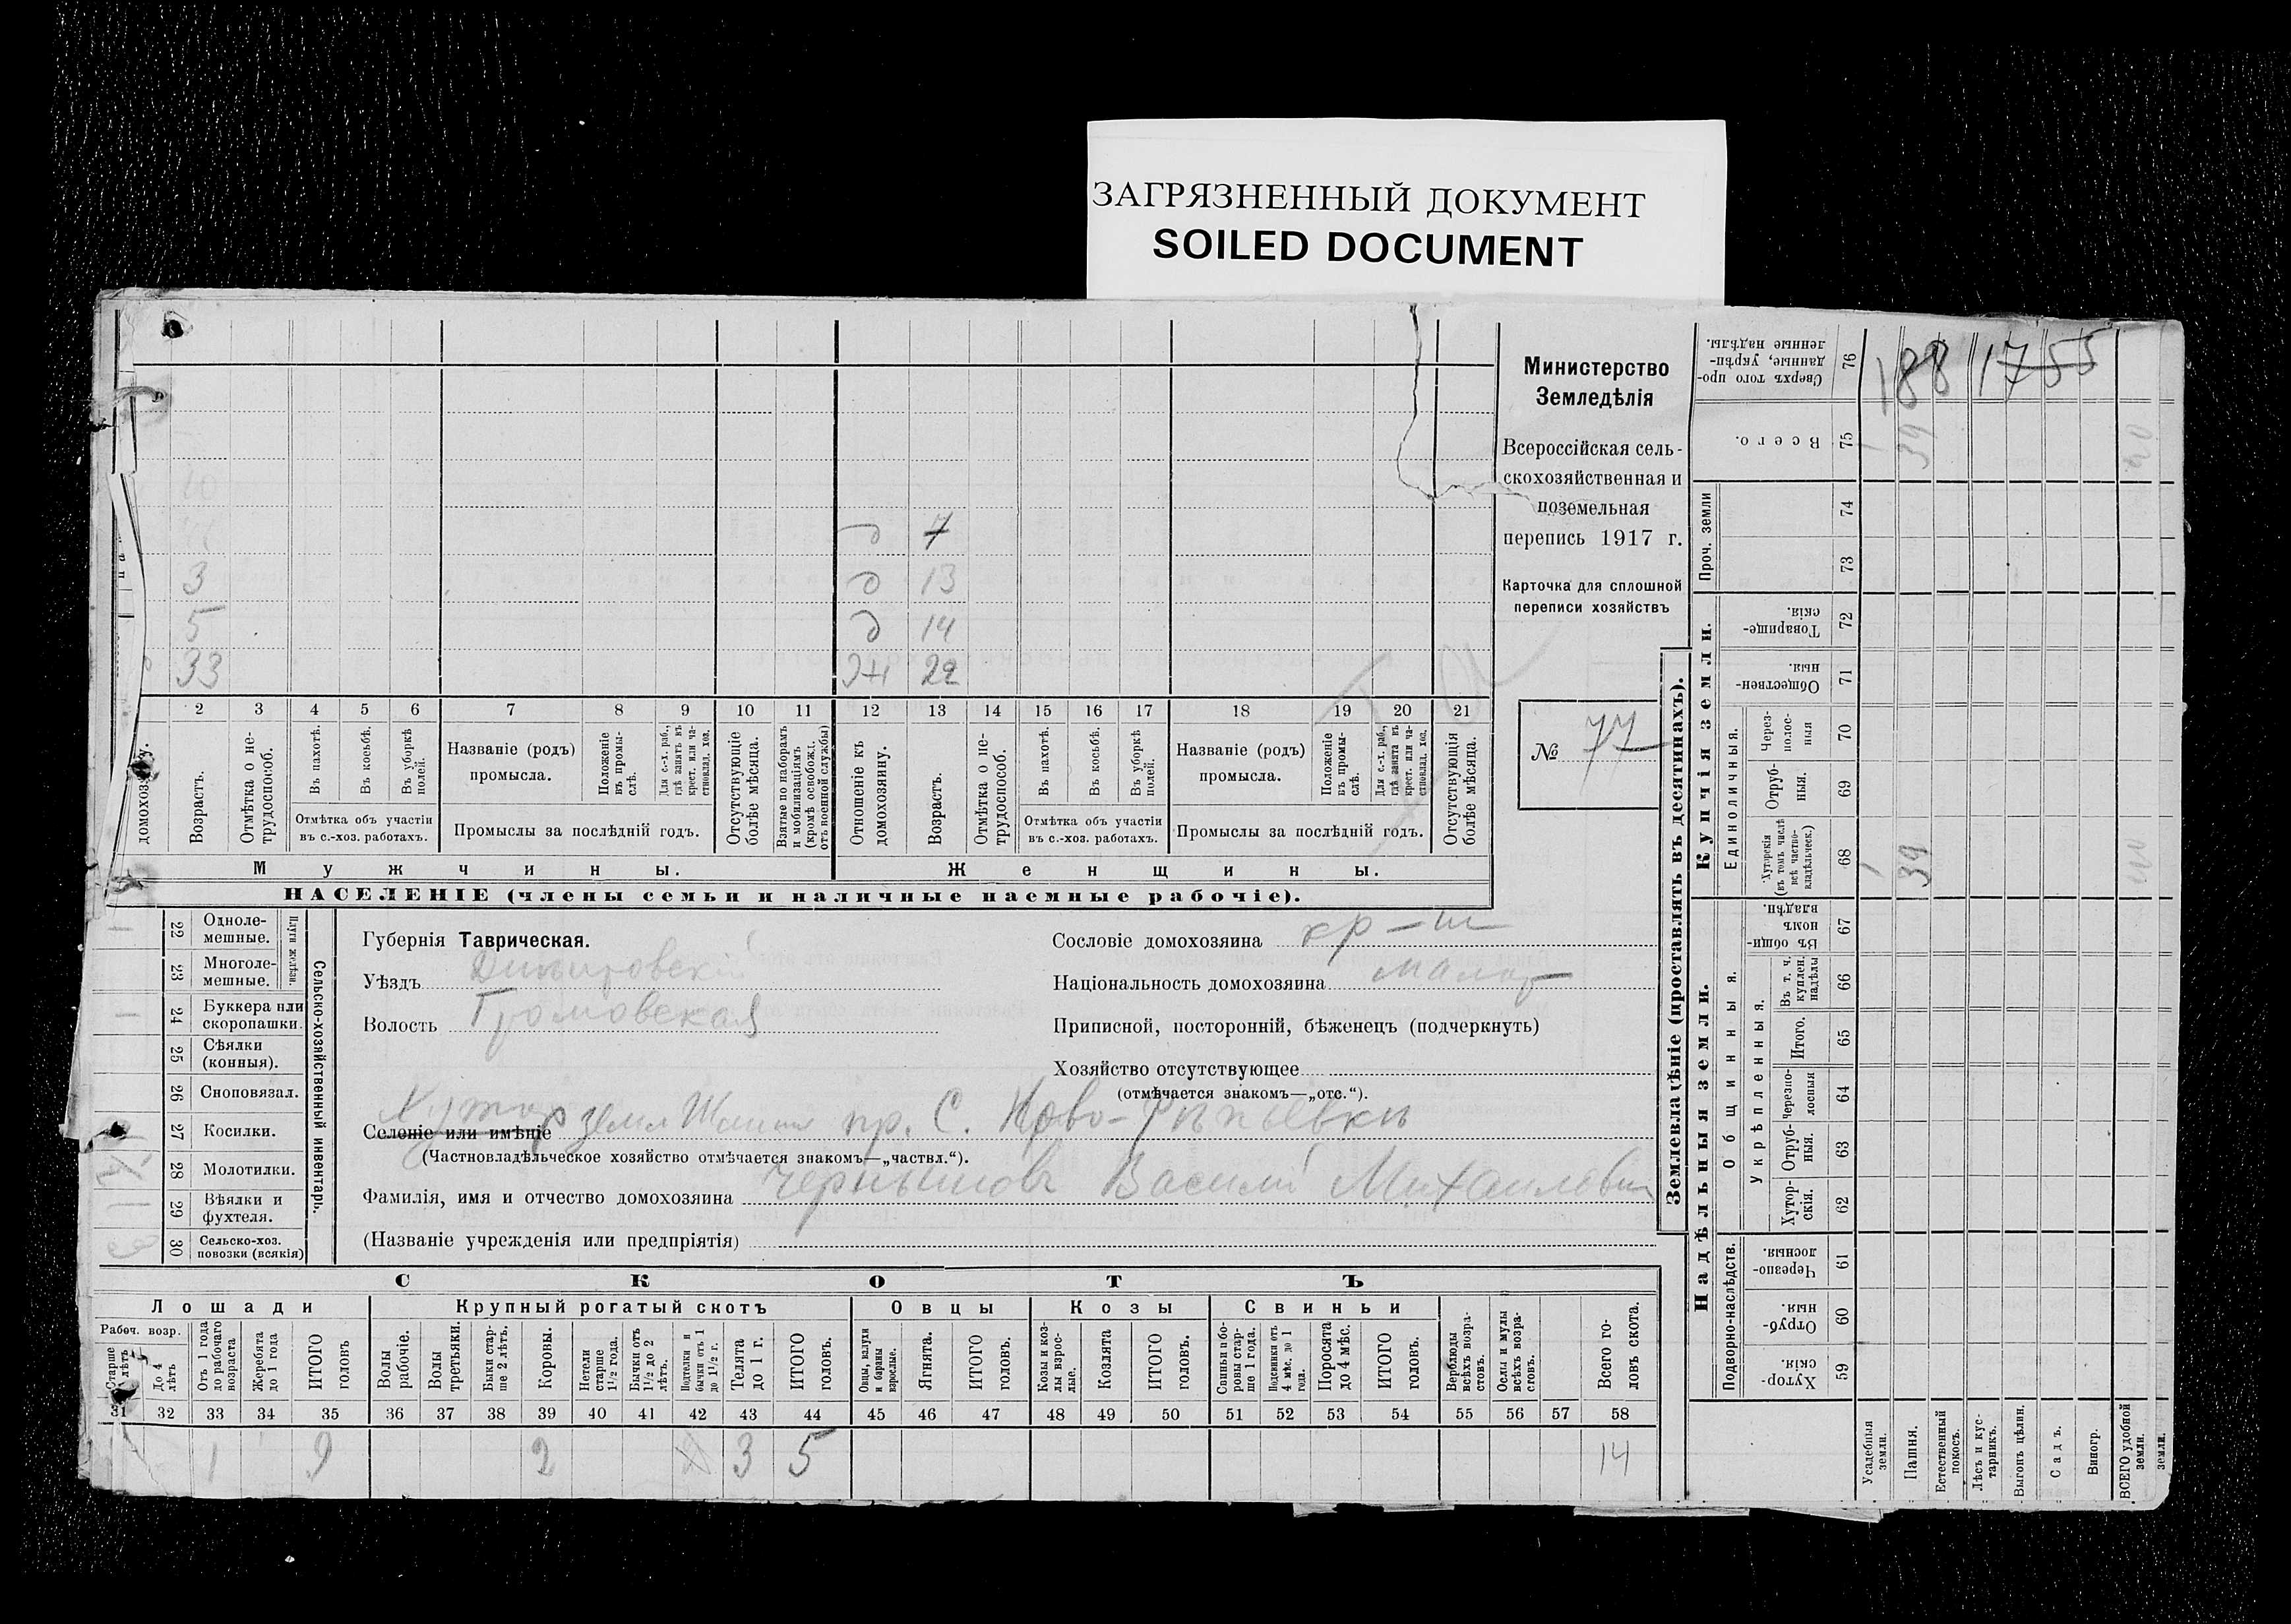 ЗАГРЯЗНЕННЫЙ ДОКУМЕНТ
SOILED DOCUMENT
Министерство
Земледѣлія
Всероссійская сель-
скохозяйственная и
поземельная
перепись 1917 г.
Карточка для сплошной
переписи хозяйствъ
№ 77
10
7
3
13
5
14
33
22
2 3 4 5 6 7 8 9 10 11 12 13 14 15 16 17 18 19 20 21
домохозяину.
Возрастъ.
Отмѣтка о не-
трудоспособ.
Въ пахотѣ.
Въ косьбѣ.
Въ уборкѣ
полей.
Отмѣтка объ участіи
въ с.-хоз. работахъ.
Названіе (родъ)
промысла.
Положеніе
въ промы-
слѣ.
Для с.-х. раб.,
гдѣ занятъ въ
крест. или ча-
стновлад. хоз.
Промыслы за послѣдній годъ.
Отсутствующіе
болѣе мѣсяца.
Взятые по наборамъ
и мобилизаціямъ
(кромѣ освобожд.
отъ военной службы)
Отношеніе къ
домохозяину.
Возрастъ.
Отмѣтка о не-
трудоспособ.
Въ пахотѣ.
Въ косьбѣ.
Въ уборкѣ
полей.
Отмѣтка объ участіи
въ с.-хоз. работахъ.
Названіе (родъ)
промысла.
Положеніе
въ промы-
слѣ.
Для с.-х. раб.,
гдѣ занята въ
крест. или ча-
стновлад. хоз.
Промыслы за послѣдній годъ.
Отсутствующія
болѣе мѣсяца.
Мужчины.
Женщины.
НАСЕЛЕНІЕ (члены семьи и наличные наемные рабочіе).
22 Одноле-
мешные.
23 Многоле-
мешные.
Плуги желѣзн.
24 Буккера или
скоропашки.
25 Сѣялки
(конныя).
26 Сноповязал.
27 Косилки.
28 Молотилки.
29 Вѣялки и
фухтеля.
30 Сельско-хоз.
повозки (всякія)
Сельско-хозяйственный инвентарь.
Губернія Таврическая.
Уѣздъ
Волость Громовская
Сословіе домохозяина кр-н
Національность домохозяина малор
Приписной, посторонній, бѣженецъ (подчеркнуть)
Хозяйство отсутствующее
(отмѣчается знакомъ—„отс.“).
Хутор
Селеніе или имѣніе земл пр. С. Ново-
(Частновладѣльческое хозяйство отмѣчается знакомъ—„частвл.“).
Фамилія, имя и отчество домохозяина Василій Михайлович
(Названіе учрежденія или предпріятія)
СКОТЪ
Лошади
Рабоч. возр.
Старше
4 лѣтъ
До 4
лѣтъ
Отъ 1 года
до рабочаго
возраста
Жеребята
до 1 года
ИТОГО
головъ
Крупный рогатый скотъ
Волы
рабочіе.
Волы
третьяки.
Быки стар-
ше 2 лѣтъ.
Коровы.
Нетели
старше
1½ года.
Бычки отъ
1½ до 2
лѣтъ.
Подтелки и
бычки отъ 1
до 1½ г.
Телята
до 1 г.
ИТОГО
головъ.
Овцы
Овцы, валухи
и бараны
взрослые.
Ягнята.
ИТОГО
головъ.
Козы
Козы и коз-
лы взрос-
лые.
Козлята
ИТОГО
головъ.
Свиньи
Свиньи и бо-
ровы стар-
ше 1 года.
Подсвинки отъ
4 мѣс. до 1
года.
Поросята
до 4 мѣс.
ИТОГО
головъ.
Верблюды
всѣхъ возра-
стовъ.
Ослы и мулы
всѣхъ возра-
стовъ.
Всего го-
ловъ скота.
31 32 33 34 35 36 37 38 39 40 41 42 43 44 45 46 47 48 49 50 51 52 53 54 55 56 57 58
1 9 2 3 5 14
Землевладѣніе (проставлять въ десятинахъ).
Купчія земли.
Надѣльныя земли.
Сверхъ того про-
данные, укрѣп-
ленные надѣлы.
76
188 1755
Всего.
75
39
40
Проч. земли
74
73
Товарище-
скія.
72
Обществен-
ныя.
71
Единоличныя.
Через-
полос-
ныя
70
Отруб-
ныя.
69
Хуторскія
(въ томъ числѣ
всѣ частно-
владѣльческ.)
68
39
Общинныя.
Въ общи-
номъ
владѣн.
67
Укрѣпленныя.
Въ т. ч.
куплен.
надѣлы
66
Итого.
65
Черезпо-
лосныя
64
Отруб-
ныя.
63
Хутор-
скія.
62
Подворно-наслѣдств.
Черезпо-
лосныя.
61
Отруб-
ныя.
60
Хутор-
скія.
59
Усадебныя
земли.
Пашня.
Естественный
покосъ.
Лѣсъ и кус-
тарникъ.
Выгонъ цѣлин.
Садъ.
Виногр.
ВСЕГО удобной
земли.
земли.